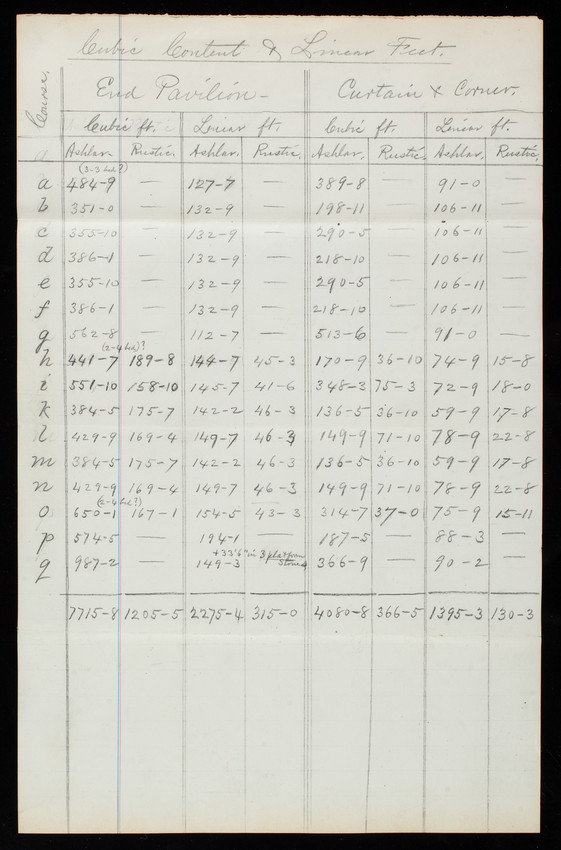 Cubic Content & Linear Feet.
Course. End Pavilion - Curtain & Corner.
Cubic ft. Linear ft. Cubic ft. Linear ft.
Ashlar. Rustic. Ashlar. Rustic. Ashlar. Rustic. Ashlar. Rustic.
a 484-9 — 127-7 — 389-8 — 91-0 —
b 351-0 — 132-9 — 198-11 — 106-11 —
c 355-10 — 132-9 — 290-5 — 106-11 —
d 386-1 — 132-9 — 218-10 — 106-11 —
e 355-10 — 132-9 — 290-5 — 106-11 —
f 386-1 — 132-9 — 218-10 — 106-11 —
g 562-8 — 112-7 — 513-6 — 91-0 —
h 441-7 189-8 144-7 45-3 170-9 36-10 74-9 15-8
i 551-10 158-10 145-7 41-6 348-3 75-3 72-9 18-0
k 384-5 175-7 142-2 46-3 136-5 36-10 59-9 17-8
l 429-9 169-4 149-7 46-3 149-9 71-10 78-9 22-8
m 384-5 175-7 142-2 46-3 136-5 36-10 59-9 17-8
n 429-9 169-4 149-7 46-3 149-9 71-10 78-9 22-8
o 650-1 167-1 154-5 43-3 314-7 37-0 75-9 15-11
p 574-5 — 194-1 — 187-5 — 88-3 —
+33'6" in 3 platform
stones
q 987-2 — 149-3 366-9 — 90-2 —
7715-8 1205-5 2275-4 315-0 4080-8 366-5 1395-3 130-3